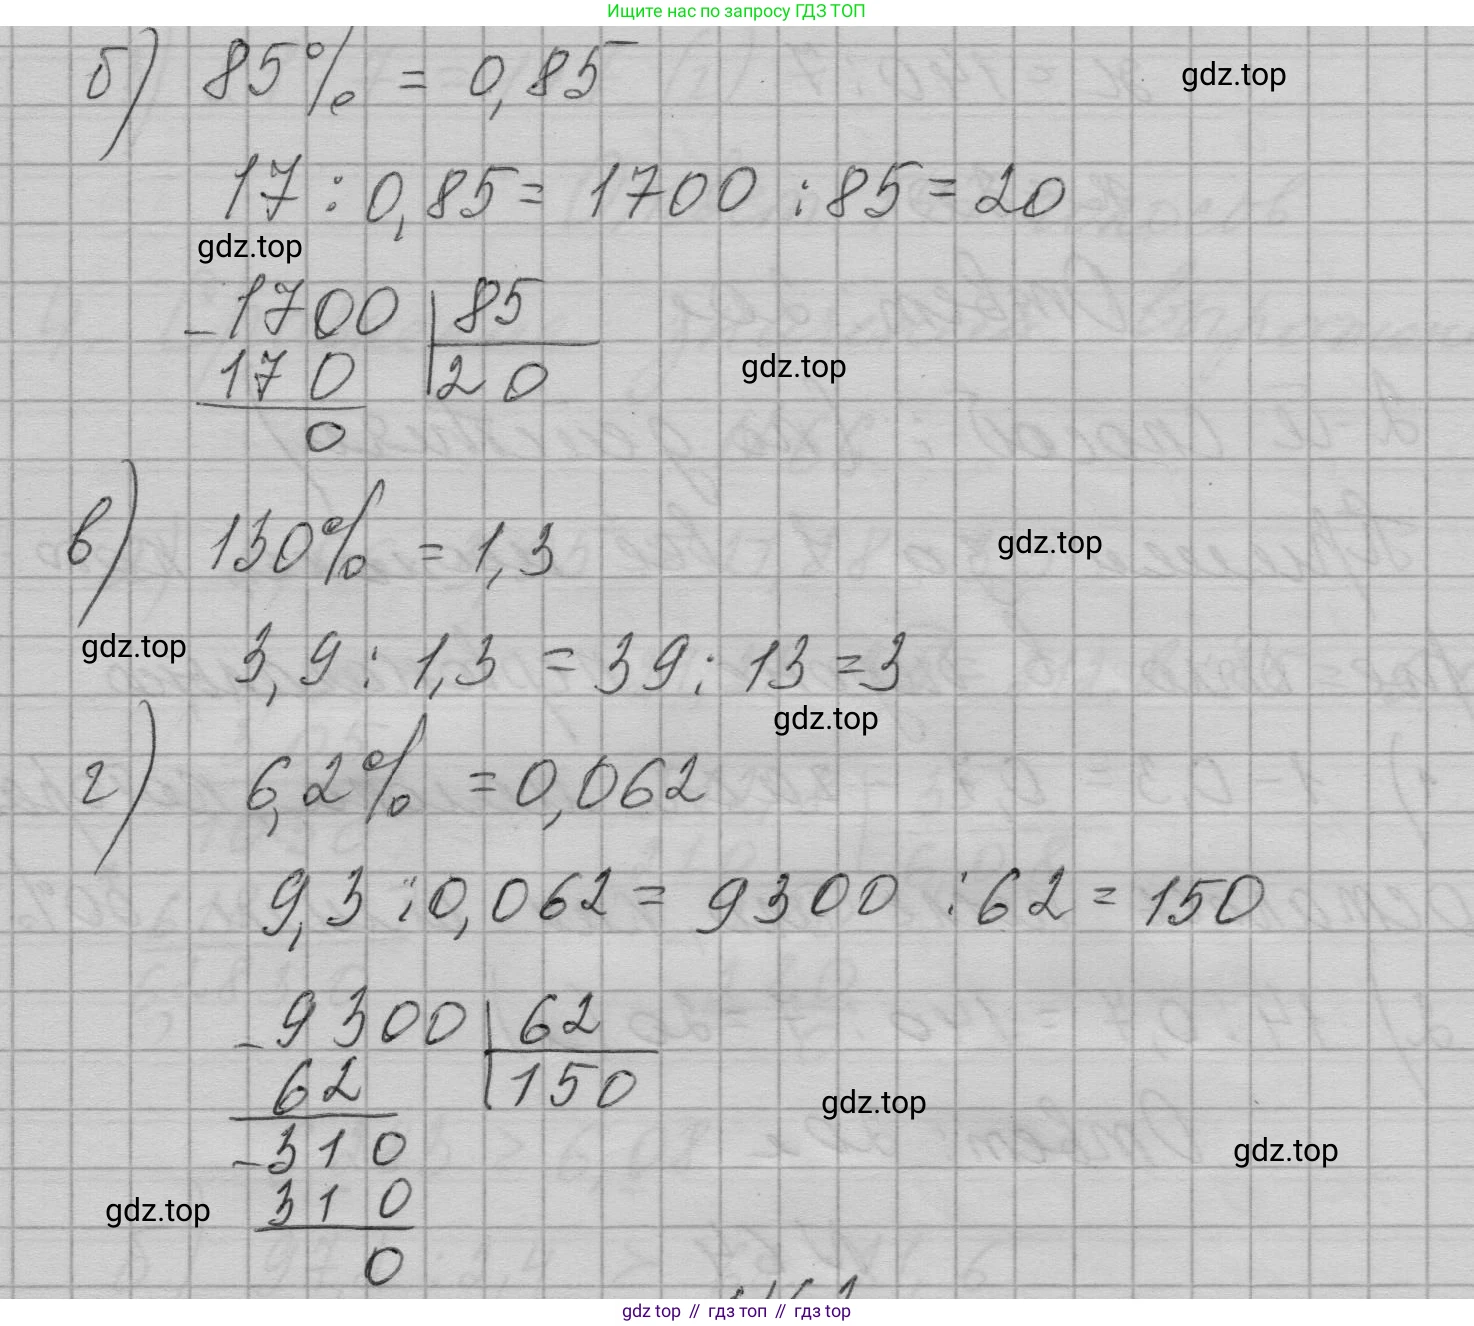 Ищите нас по запросу ГДЗ ТОП
б) 85% = 0,85
gdz.top
17 : 0,85 = 1700 : 85 = 20
gdz.top
- 1700 | 85
170 | 20
gdz.top
0
в) 130% = 1,3
gdz.top
gdz.top
3,9 : 1,3 = 39 : 13 = 3
gdz.top
г) 6,2% = 0,062
9,3 : 0,062 = 9300 : 62 = 150
- 9300 | 62
62 | 150
gdz.top
- 310
gdz.top
310
gdz.top
0
gdz top // гдз топ // гдз top